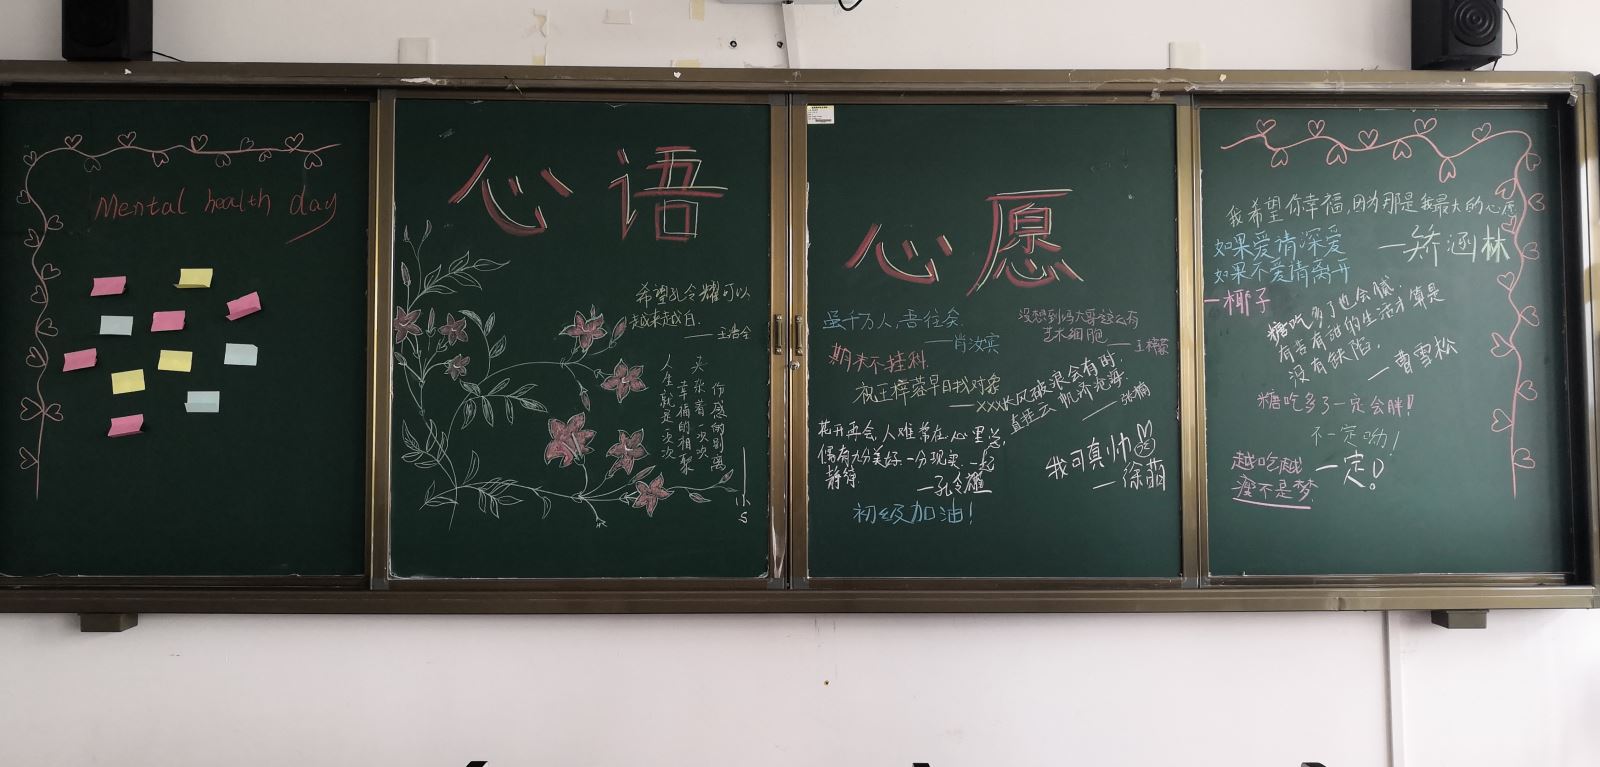 Mental health day
心语
希望孔令耀可以
越来越白.
——王浩全
伤感的别离
夹杂着一次次
幸福的相聚
人生就是一次次
——小S
心愿
虽千万人,吾往矣.
——肖汝宾
没想到冯大哥这么有
艺术细胞.
期末不挂科.
祝王梓蓉早日找对象
——XXX
长风破浪会有时,
直挂云帆济沧海.
——张楠
花开再会,人难常在,心里总
偶有九分美好.一分现实.一起
静待.
我可真帅
——徐萌
初级加油!
我希望你幸福,因为那是我最大的心愿
——矫涵林
如果爱请深爱
如果不爱请离开
—椰子
糖吃多了也会腻.
有苦有甜的生活才算是
没有缺陷.
——曹雪松
糖吃多了一定会胖!
不一定呦!
一定!
越吃越
瘦不是梦